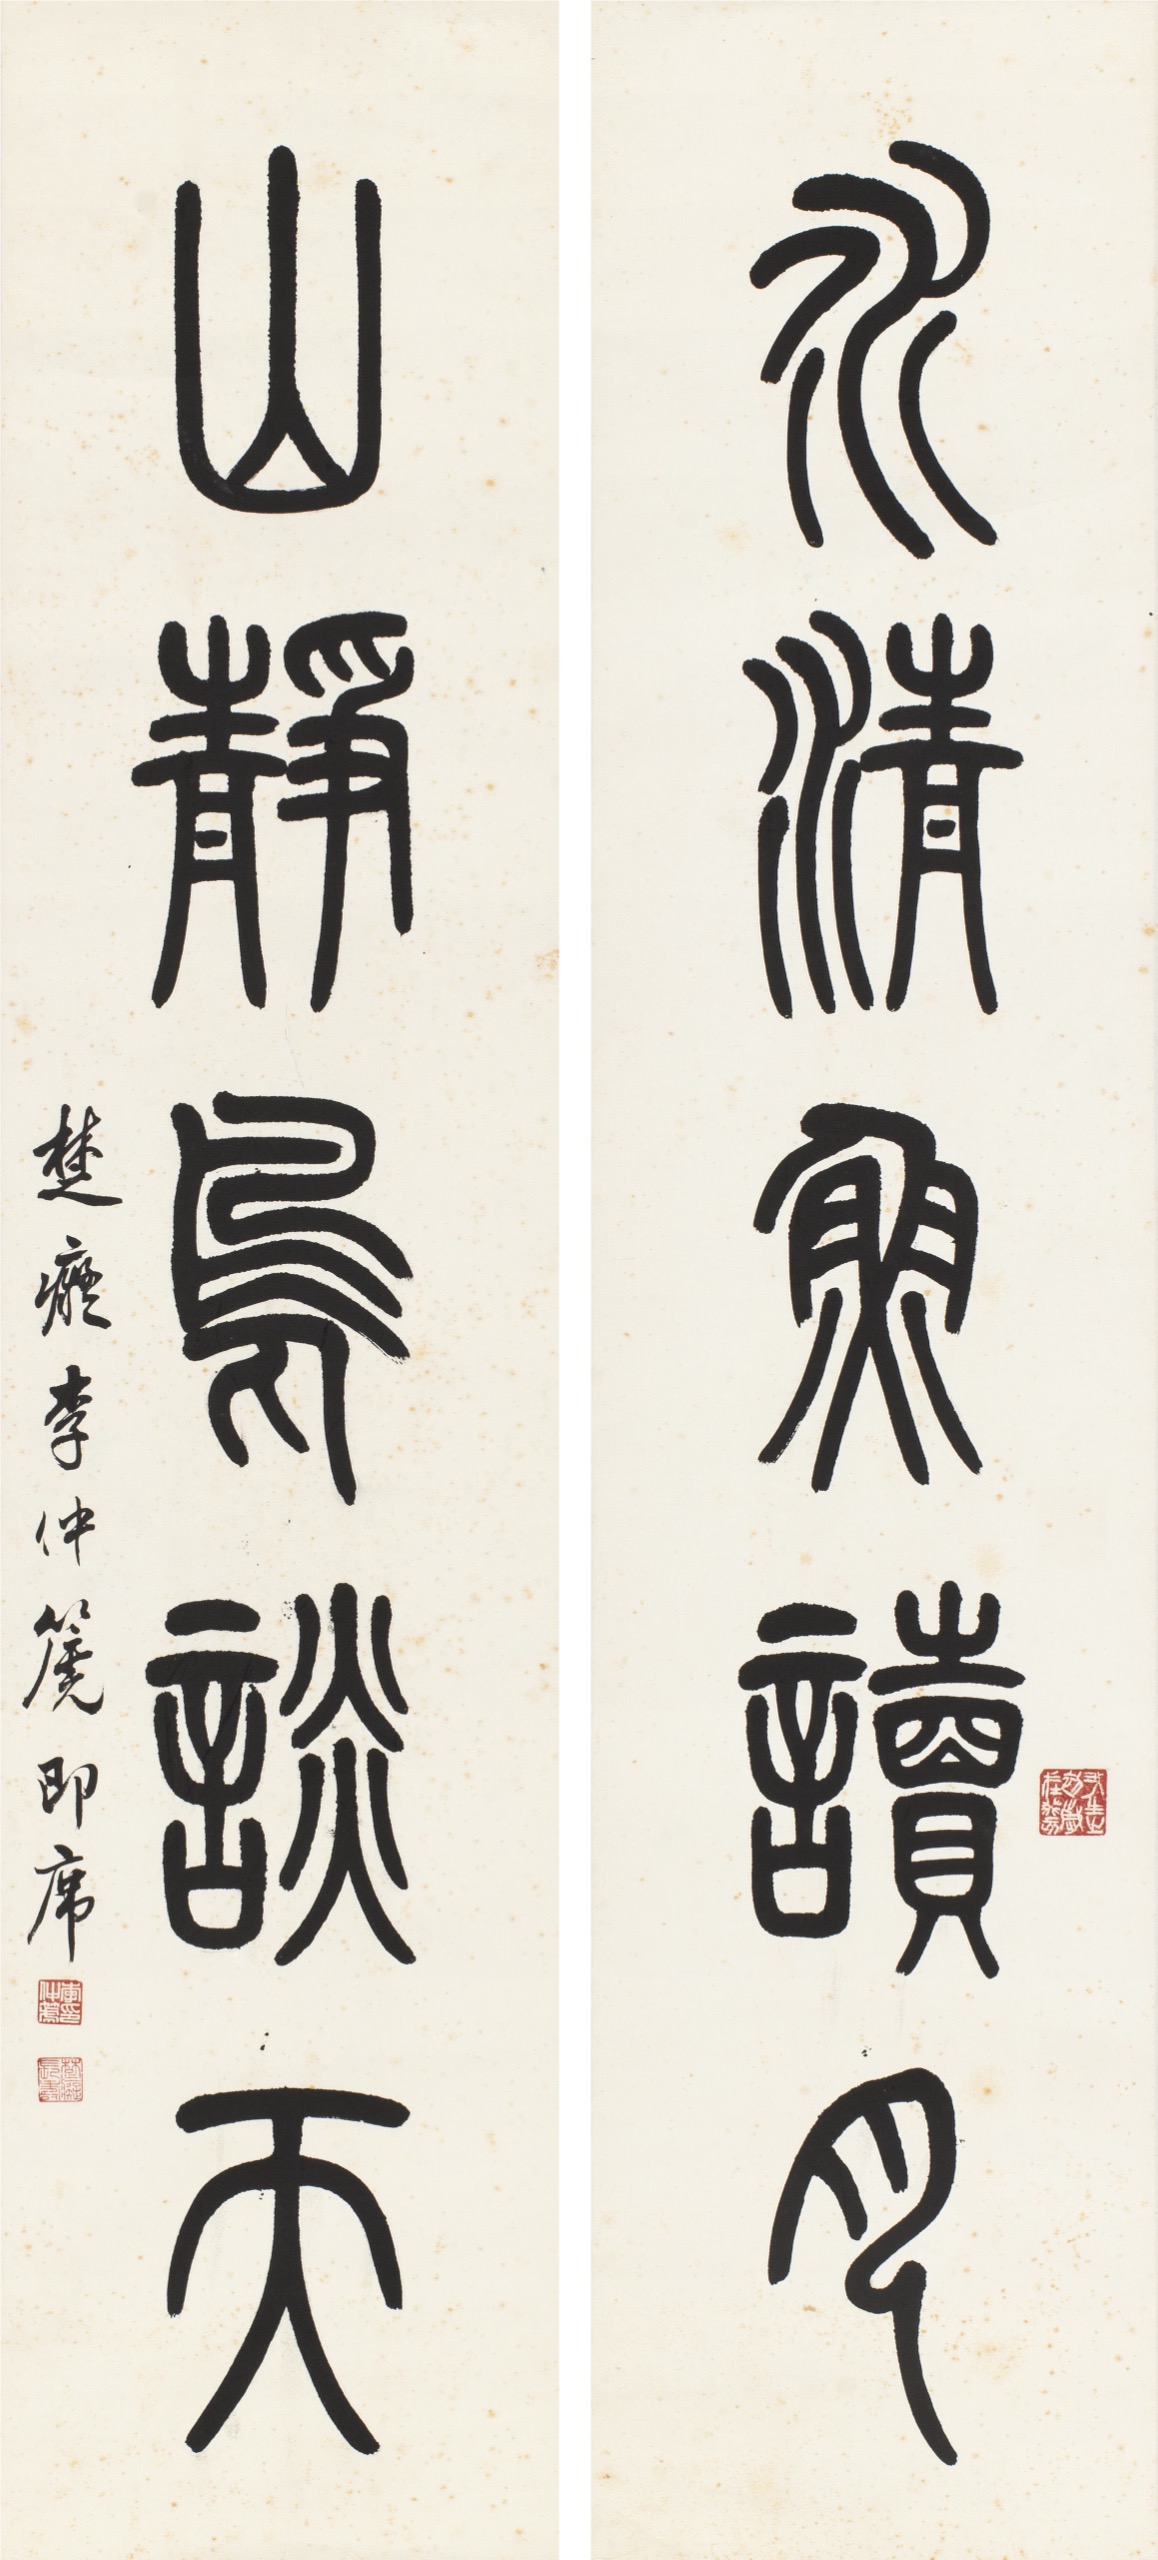 水清魚讀月
山靜鳥談天
楚癡李仲篪即席